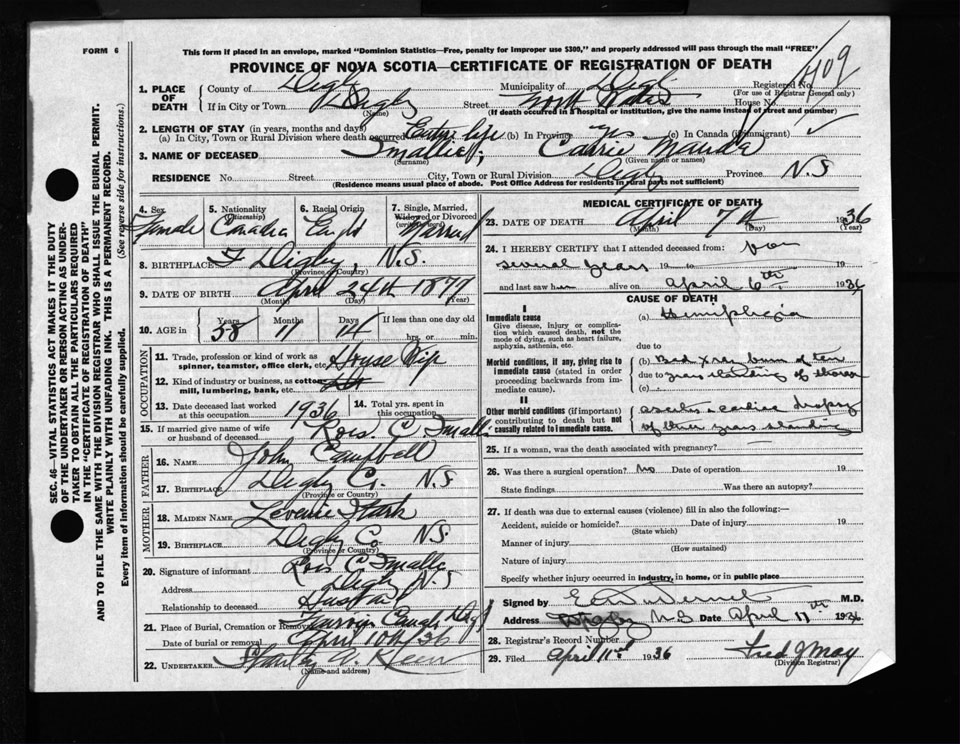 FORM 6
This form if placed in an envelope, marked "Dominion Statistics—Free, penalty for improper use $300," and properly addressed will pass through the mail "FREE"
PROVINCE OF NOVA SCOTIA—CERTIFICATE OF REGISTRATION OF DEATH
409
1. PLACE OF DEATH
County of Digby Municipality of Digby Registered No.
(For use of Registrar General only)
If in City or Town Digby Street House No.
(Name) (If death occurred in a hospital or institution, give the name instead of street and number)
2. LENGTH OF STAY (in years, months and days)
(a) In City, Town or Rural Division where death occurred Entire life (b) In Province yes (c) In Canada (if immigrant)
3. NAME OF DECEASED Smallie, Carrie Mauda
(Surname) (Given name or names)
RESIDENCE No. Street City, Town or Rural Division Digby Province N.S
(Residence means usual place of abode. Post Office Address for residents in rural parts not sufficient)
4. Sex Female
5. Nationality (Citizenship) Canadian
6. Racial Origin
7. Single, Married, Widowed or Divorced (write the word) Married
8. BIRTHPLACE Digby, N.S.
(Province or Country)
9. DATE OF BIRTH April 24th 1877
(Month) (Day) (Year)
10. AGE in Years Months Days If less than one day old
58 11 14 hrs. or min.
OCCUPATION
11. Trade, profession or kind of work as spinner, teamster, office clerk, etc. House
12. Kind of industry or business, as cotton mill, lumbering, bank, etc.
13. Date deceased last worked at this occupation 1936
14. Total yrs. spent in this occupation
15. If married give name of wife or husband of deceased C Smalli
FATHER
16. NAME John Campbell
17. BIRTHPLACE Digby Co. N.S
(Province or Country)
MOTHER
18. MAIDEN NAME
19. BIRTHPLACE Digby Co N.S.
(Province or Country)
20. Signature of informant C Smallie
Address Digby N.S
Relationship to deceased Husband
21. Place of Burial, Cremation or Removal
Date of burial or removal April 10th/36
22. UNDERTAKER
(Name and address)
MEDICAL CERTIFICATE OF DEATH
23. DATE OF DEATH April 7th 1936
(Month) (Day) (Year)
24. I HEREBY CERTIFY that I attended deceased from:
several years 19 to 19
and last saw her alive on April 6th 1936
CAUSE OF DEATH
I
Immediate cause
Give disease, injury or complication which caused death, not the mode of dying, such as heart failure, asphyxia, asthenia, etc.
(a) Hemiplegia
due to
Morbid conditions, if any, giving rise to immediate cause (stated in order proceeding backwards from immediate cause).
(b) Bad X ray burn of ten
due to years standing of thorax
(c)
II
Other morbid conditions (if important) contributing to death but not causally related to immediate cause.
ascites & cardiac dropsy
of three years standing
25. If a woman, was the death associated with pregnancy?
26. Was there a surgical operation? No Date of operation 19
State findings Was there an autopsy?
27. If death was due to external causes (violence) fill in also the following:—
Accident, suicide or homicide? Date of injury 19
(State which)
Manner of injury
(How sustained)
Nature of injury
Specify whether injury occurred in industry, in home, or in public place
Signed by M.D.
Address Digby N.S Date April 11th 1936
28. Registrar's Record Number
29. Filed April 11th 1936 Fred J May
(Division Registrar)
SEC. 46—VITAL STATISTICS ACT MAKES IT THE DUTY OF THE UNDERTAKER OR PERSON ACTING AS UNDERTAKER TO OBTAIN ALL THE PARTICULARS REQUIRED IN THE "CERTIFICATE OF REGISTRATION OF DEATH"
AND TO FILE THE SAME WITH THE DIVISION REGISTRAR WHO SHALL ISSUE THE BURIAL PERMIT.
WRITE PLAINLY WITH UNFADING INK. THIS IS A PERMANENT RECORD.
Every item of information should be carefully supplied. (See reverse side for instructions.)